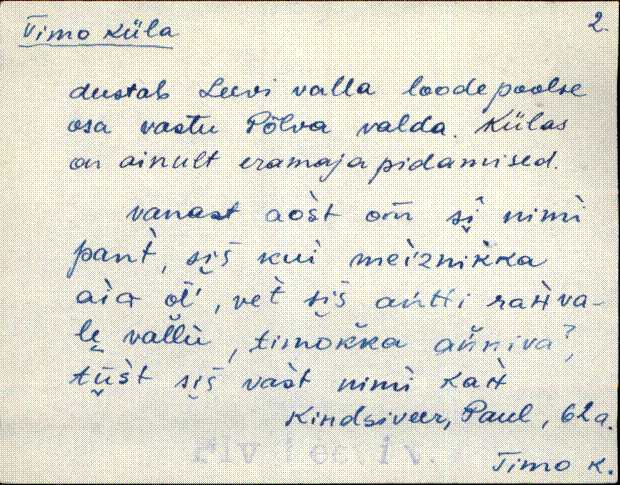 Timo küla
2.
dustab Leevi valla loodepoolse
osa vastu Põlva valda. Külas
on ainult eramajapidamised.
vanast aośt om̄ si̬ nimi
pant̀, siš kui meiznikka
aia ol̄', vet̀ siš antti rahva-
le̬ vaĺlu, timokka ańniva?,
tüšt siš vast nimi kah
Kindsiveer, Paul, 62 a.
Timo k.